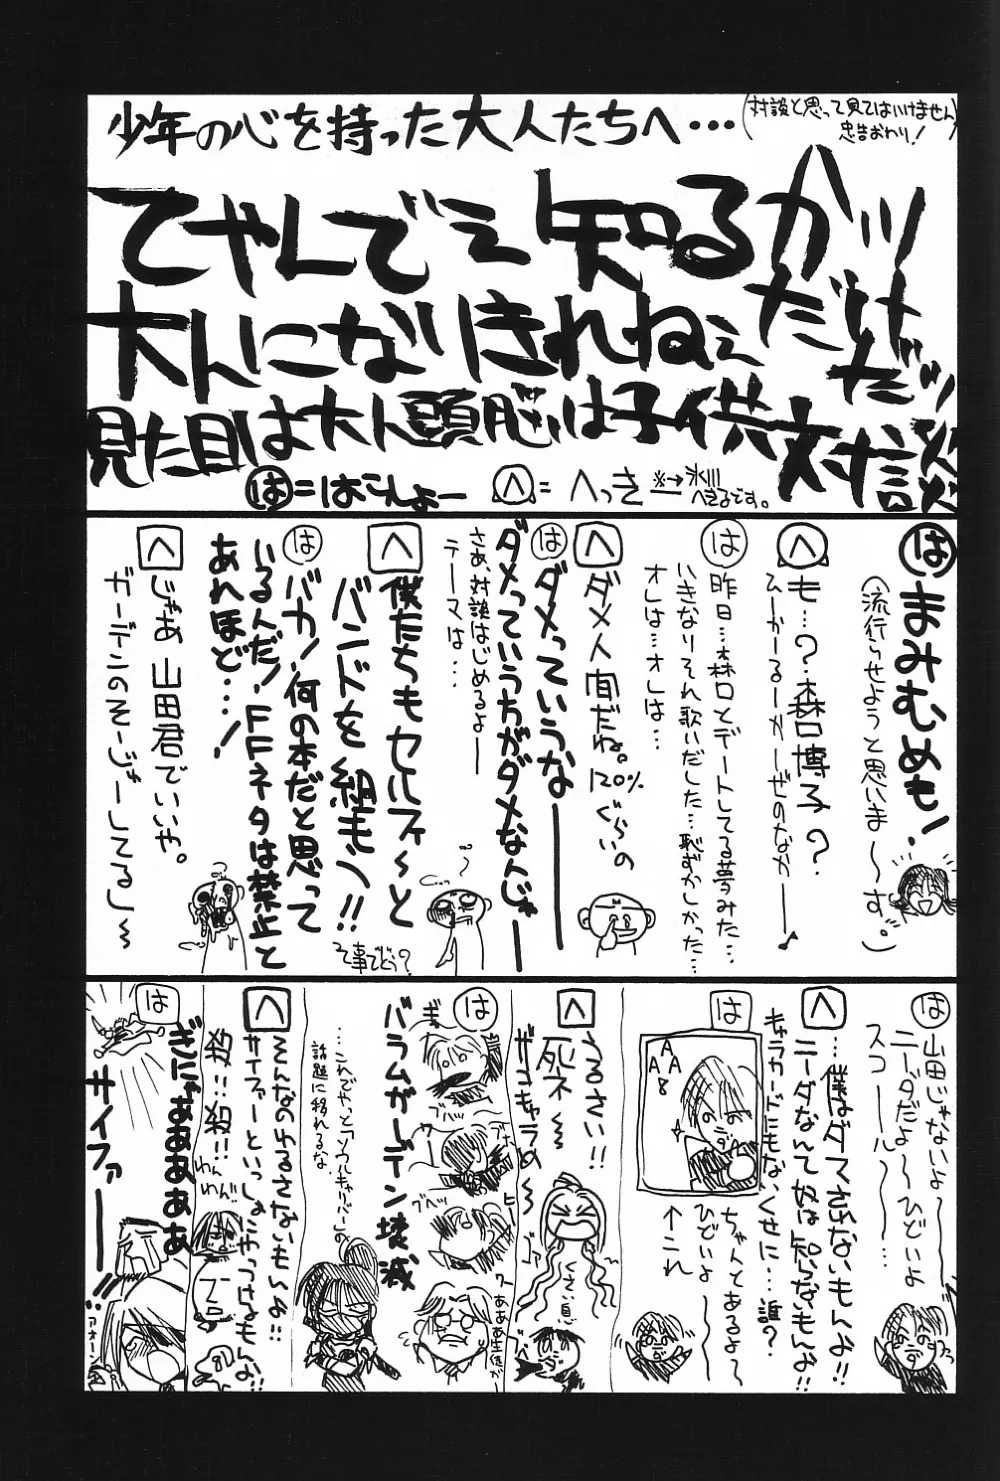 少年の心を持った大人たちへ…
(対談と思って見てはいけません
忠告おわり!)
てやんでぇ知るかッ
大人になりきれねぇだけだッ
見た目は大人頭脳は子供対談
は=はこしょー
へ=へっき
※→氷川
へきるです。
は まみむめも!
(流行らせようと思いま〜す。)
へ も…?森口博子?
ひーかーるーかーぜのなかー♪
は 昨日…森口とデートしてる夢みた…
いきなりそれ歌いだした…恥ずかしかった…
オレは…オレは…
へ ダメ人間だね。120%ぐらいの
は ダメっていうなー
ダメっていうちがダメなんじゃー
さあ、対談はじめるよー
テーマは…
へ 僕たちもセルフィ〜と
バンドを組もう!!
て事でどう?
は バカ!何の本だと思って
いるんだ!FFネタは禁止と
あれほど…!
へ じゃあ山田君でいいや。
ガーデンのそーじゃーしてるし〜
は 山田じゃないよ〜
ニーダだよ〜ひどいよ
スコール〜…
へ …僕はダマされないもんよ!!
ニーダなんて奴は知らなもんよ
キャラカードにもなくせに…誰?
は ちゃんとあるよ〜
ひどいよ〜
↑コレ
A
A A
8
へ うるさい!!
死ネ〜
ザコキャラめ〜
くさい息
は バラムガーデン壊滅
ブハッ
ブヘッ
うーああ生徒が
…これでやっと「ソウルキャリバー」の
話題に移れるな
へ そんなのゆるさないもんよ!!
サイファーといっしょにやっつけるもんよ!!
わんわん!!
は ぎにゃああああぁ
サイファー——!!
アオーン